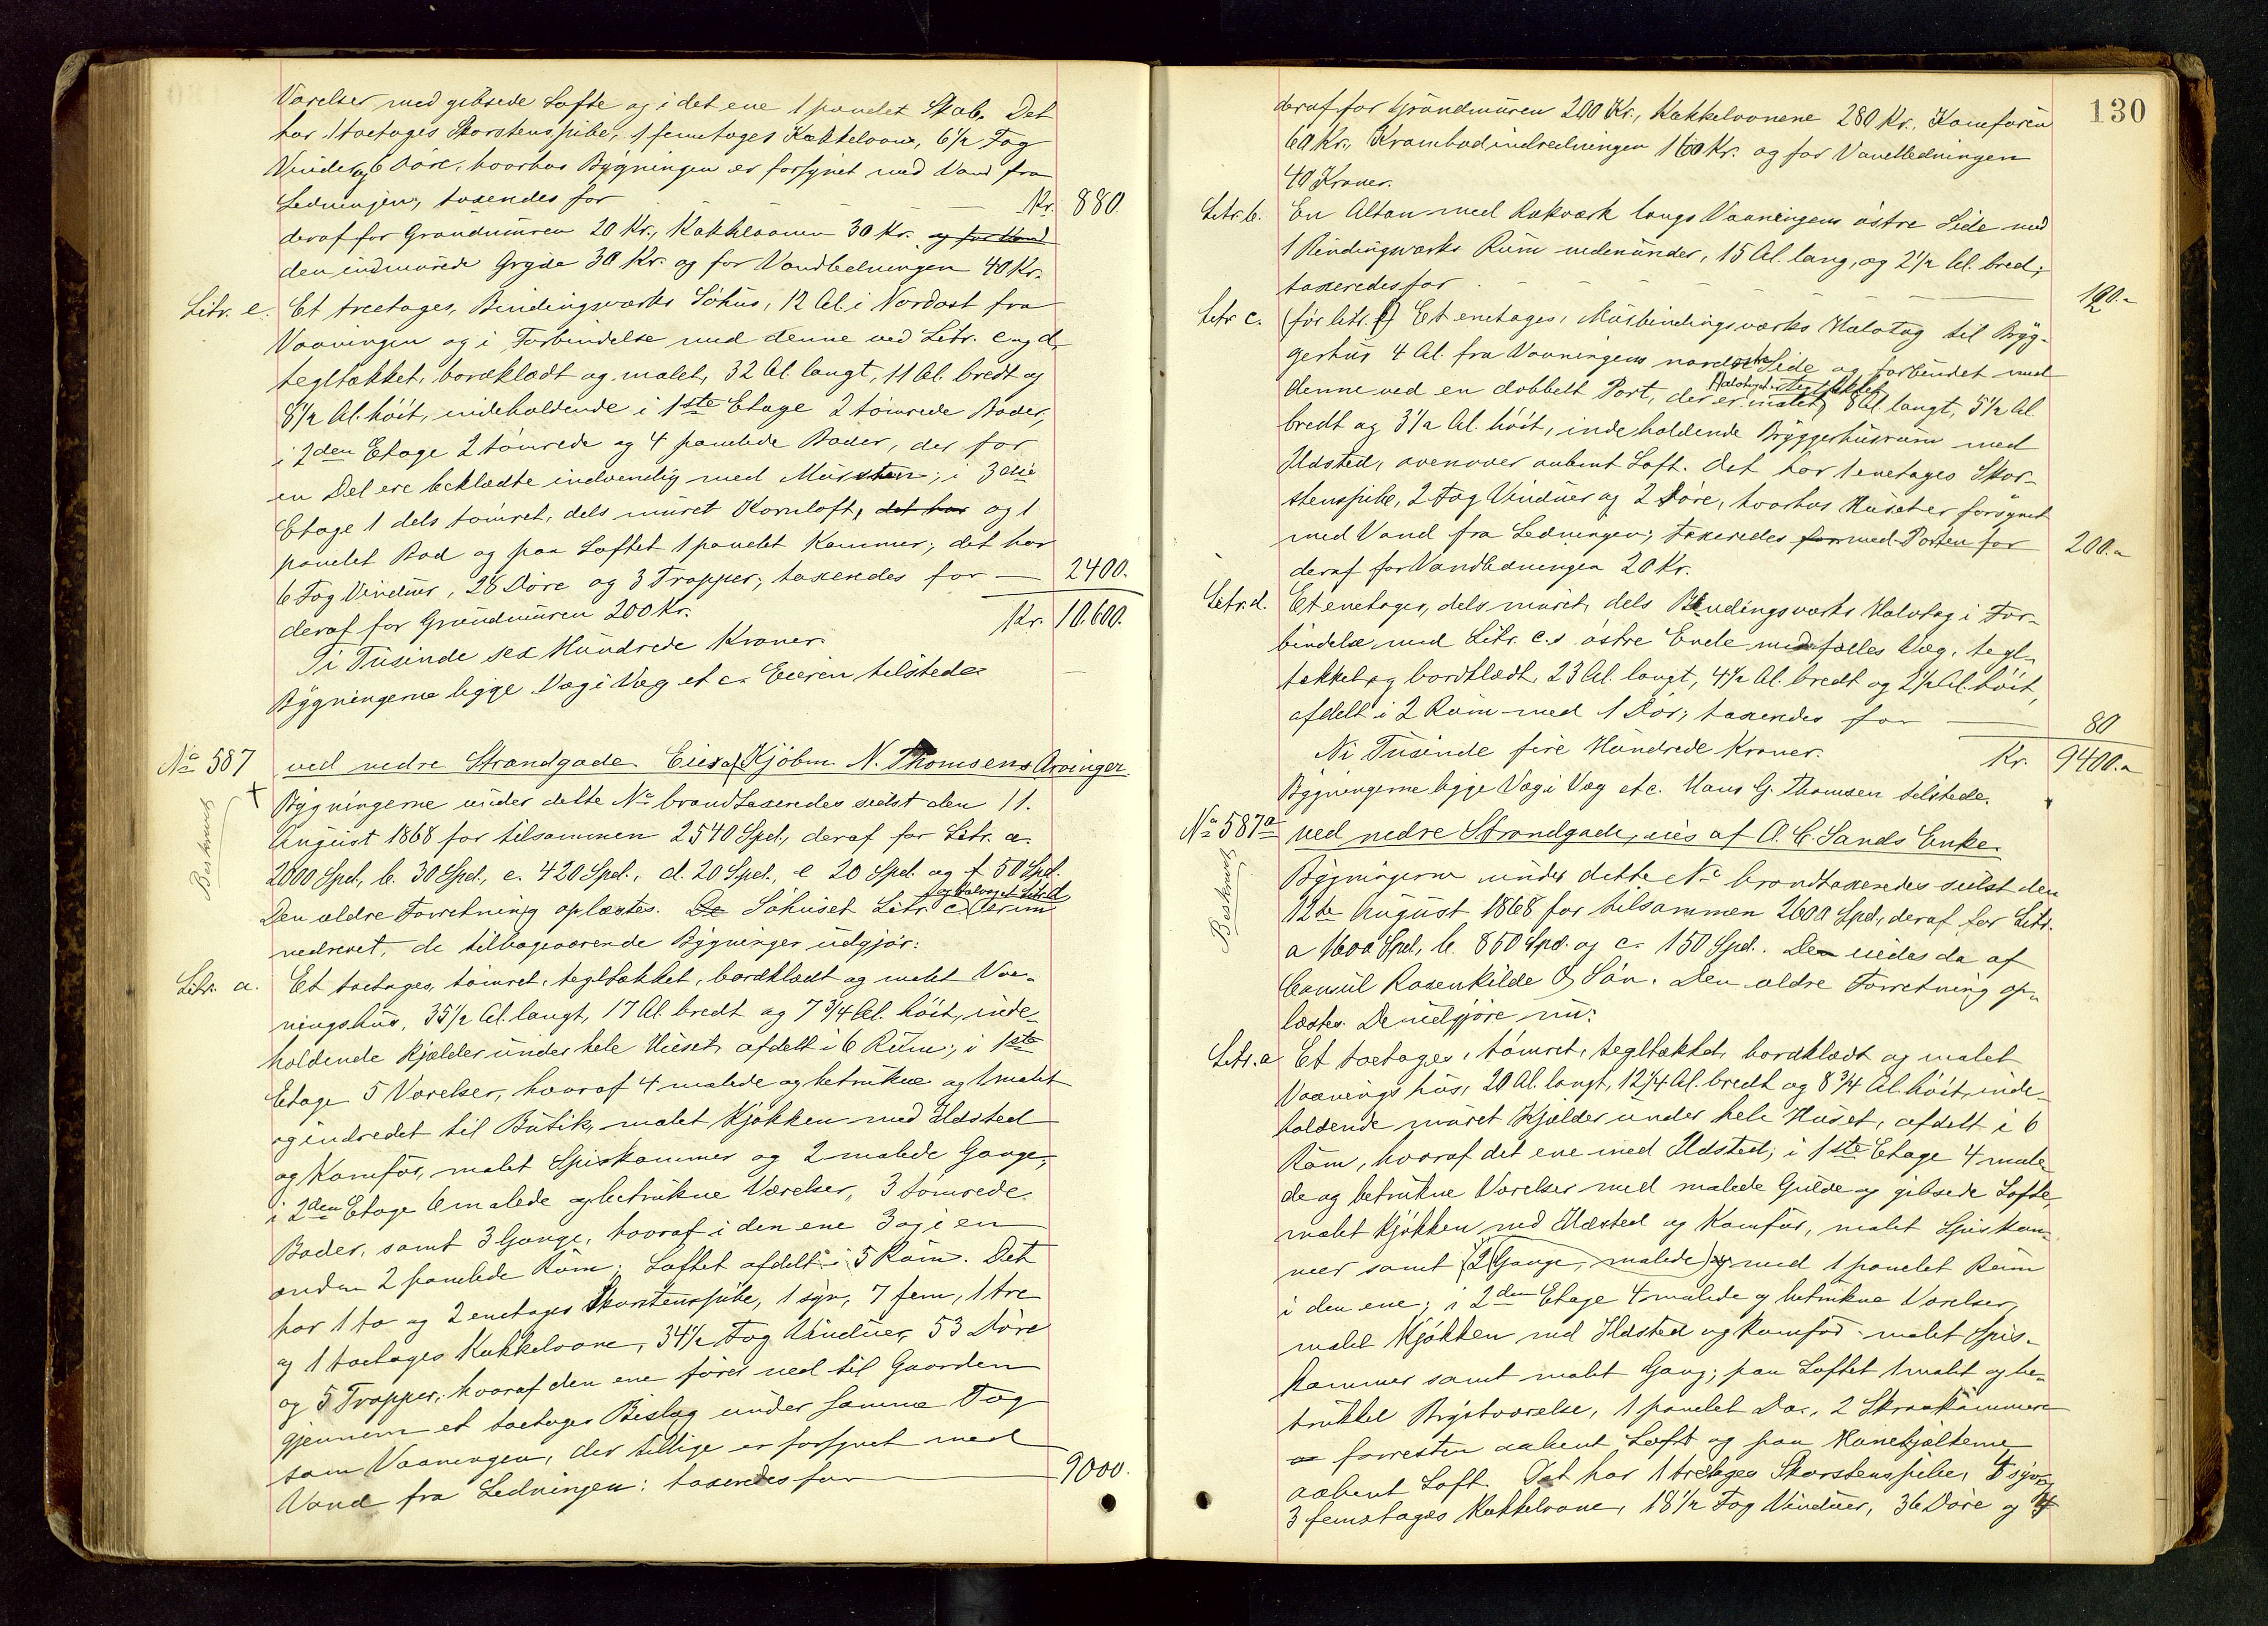 Værelser med gibsede Lofte og i det ene 1 panelet Skab. Det
har 1 toetages Skorstenspibe, 1 femetages Kakkelovn, 6 1/2 Fag
Vinduer og 6 Döre, hvorhos Bygningen er forsynet med Vand fra
Ledningen; taxeredes for Kr. 880.
deraf for Grundmuren 20 Kr., Kakkelovnen 30 Kr. og for Vand
den indmurede Gryde 30 Kr. og for Vandledningen 40 Kr.
Litr. e. Et treetages, Bindingsværks Söhus, 12 Al. i Nordost fra
Vaaningen og i Forbindelse med denne ved Litr. c og d,
tegltækket, bordklædt og malet, 32 Al. langt, 11 Al. bredt og
8 1/2 Al. höit, indeholdende i 1ste Etage 2 tömrede Boder,
i 2den Etage 2 tömrede og 4 panelede Boder, der for
en Del ere beklædte indvendig med Mursten; i 3die
Etage 1 dels tömret, dels muret Kornloft, det har og 1
panelet Bod og paa Loftet 1 panelet Kammer; det har
6 Fag Vinduer, 28 Döre og 3 Trapper; taxeredes for — 2400.
deraf for Grundmuren 200 Kr. Kr. 10.600.
Ti Tusinde sex Hundrede Kroner.
Bygningerne ligge Væg i Væg etc. Eieren tilstede.
No 587 ved nedre Strandgade Eies af Kjöbm. N. Thomsens Arvinger.
Beskrevet
Bygningerne under dette No brandtaxeredes sidst den 11.
August 1868 for tilsammen 2540 Spd., deraf for Litr. a.
2000 Spd., b. 30 Spd., c. 420 Spd., d. 20 Spd., e 20 Spd. og f 50 Spd.
Den ældre Forretning oplæstes. De Söhuset Litr. c og Halvtaget Litr. d er nu
nedrevet, de tilbageværende Bygninger udgjör:
Litr. a. Et toetages, tömret, tegltækket, bordklædt og malet Vaa-
ningshus, 35 1/2 Al. langt, 17 Al. bredt og 7 3/4 Al. höit, inde-
holdende Kjælder under hele Huset, afdelt i 6 Rum; i 1ste
Etage 5 Værelser, hvoraf 4 malede og betrukne og 1 malet
og indredet til Butik, malet Kjökken med Ildsted
og Komfür, malet Spiskammer og 2 malede Gange,
i 2den Etage 6 malede og betrukne Værelser, 3 tömrede
Boder, samt 3 Gange, hvoraf i den ene 3 og i en
anden 2 panelede Rum; Loftet afdelt i 5 Rum. Det
har 1 to og 2 enetages Skorstenspibe, 1 syv, 7 fem, 1 tre
og 1 toetages Kakkelovne, 34 1/2 Fag Vinduer, 53 Döre
og 5 Trapper, hvoraf den ene förer ned til Gaarden
gjennem et toetages Bislag under samme Tag
som Vaaningen, der tillige er forsynet med
Vand fra Ledningen: taxeredes for 9000.
130
deraf for Grundmuren 200 Kr., Kakkelovnene 280 Kr., Komfüren
60 Kr., Krambodindredningen 160 Kr. og for Vandledningen
40 Kroner.
Litr. b. En Altan med Rækværk langs Vaaningens östre Side med
1 Bindingsværks Rum nedenunder, 15 Al. lang, og 2 1/2 Al. bred;
taxeredes for 120.-
Litr c. (för litr. f) Et enetages, Murbindingsværks Halvtag til Bryg-
gerhus 4 Al. fra Vaaningens nordostre Side og forbundet med
denne ved en dobbelt Port, der er malet, Halvtaget er tegltækket 8 Al. langt, 5 1/2 Al.
bredt og 3 1/2 Al. höit, indeholdende Bryggerhusrum med
Ildsted, ovenover aabent Loft. Det har 1 enetages Skor-
stenspibe, 2 Fag Vinduer og 2 Döre, hvorhos Huset er forsynet
med Vand fra Ledningen; taxeredes for med Porten for 200.-
deraf for Vandledningen 20 Kr.
Litr. d. Et enetages, dels muret, dels Bindingsværks Halvtag i For-
bindelse med Litr. c.s östre Ende med fælles Væg, tegl-
tækket og bordklædt, 23 Al. langt, 4 1/2 Al. bredt og 2 1/2 Al. höit,
afdelt i 2 Rum med 1 Dör; taxeredes for 80
Ni Tusinde fire Hundrede Kroner. Kr. 9400.-
Bygningerne ligge Væg i Væg etc. Hans G. Thomsen tilstede.
No 587a ved nedre Strandgade, eies af A. C. Sands Enke.
Beskrevet
Bygningerne under dette No brandtaxeredes sidst den
12te August 1868 for tilsammen 2600 Spd., deraf for Litr.
a 1600 Spd., b. 850 Spd. og c. 150 Spd. Den eiedes da af
Consul Rosenkilde & Sön. Den ældre Forretning op-
læstes. De udgjöre nu:
Litr. a Et toetages, tömret, tegltækket, bordklædt og malet
Vaaningshus, 20 Al. langt, 12 1/4 Al. bredt og 8 3/4 Al. höit, inde-
holdende muret Kjælder under hele Huset, afdelt i 6
Rum, hvoraf det ene med Ildsted; i 1ste Etage 4 male-
de og betrukne Værelser med malede Gulve og gibsede Lofte,
malet Kjökken med Ildsted og Komfür, malet Spiskam-
mer samt (2 Gange, malede) og med 1 panelet Rum
i den ene; i 2den Etage 4 malede og betrukne Værelser,
malet Kjökken med Ildsted og Komfür, malet Spis-
kammer samt malet Gang; paa Loftet 1 malet og be-
trukket Brystværelse, 1 panelet Do., 2 Skraakammere
og forresten aabent Loft og paa Hanebjælkerne
aabent Loft. Det har 1 treetages Skorstenspibe, 4 syv og
3 femetages Kakkelovne, 18 1/2 Fag Vinduer, 36 Döre og 4